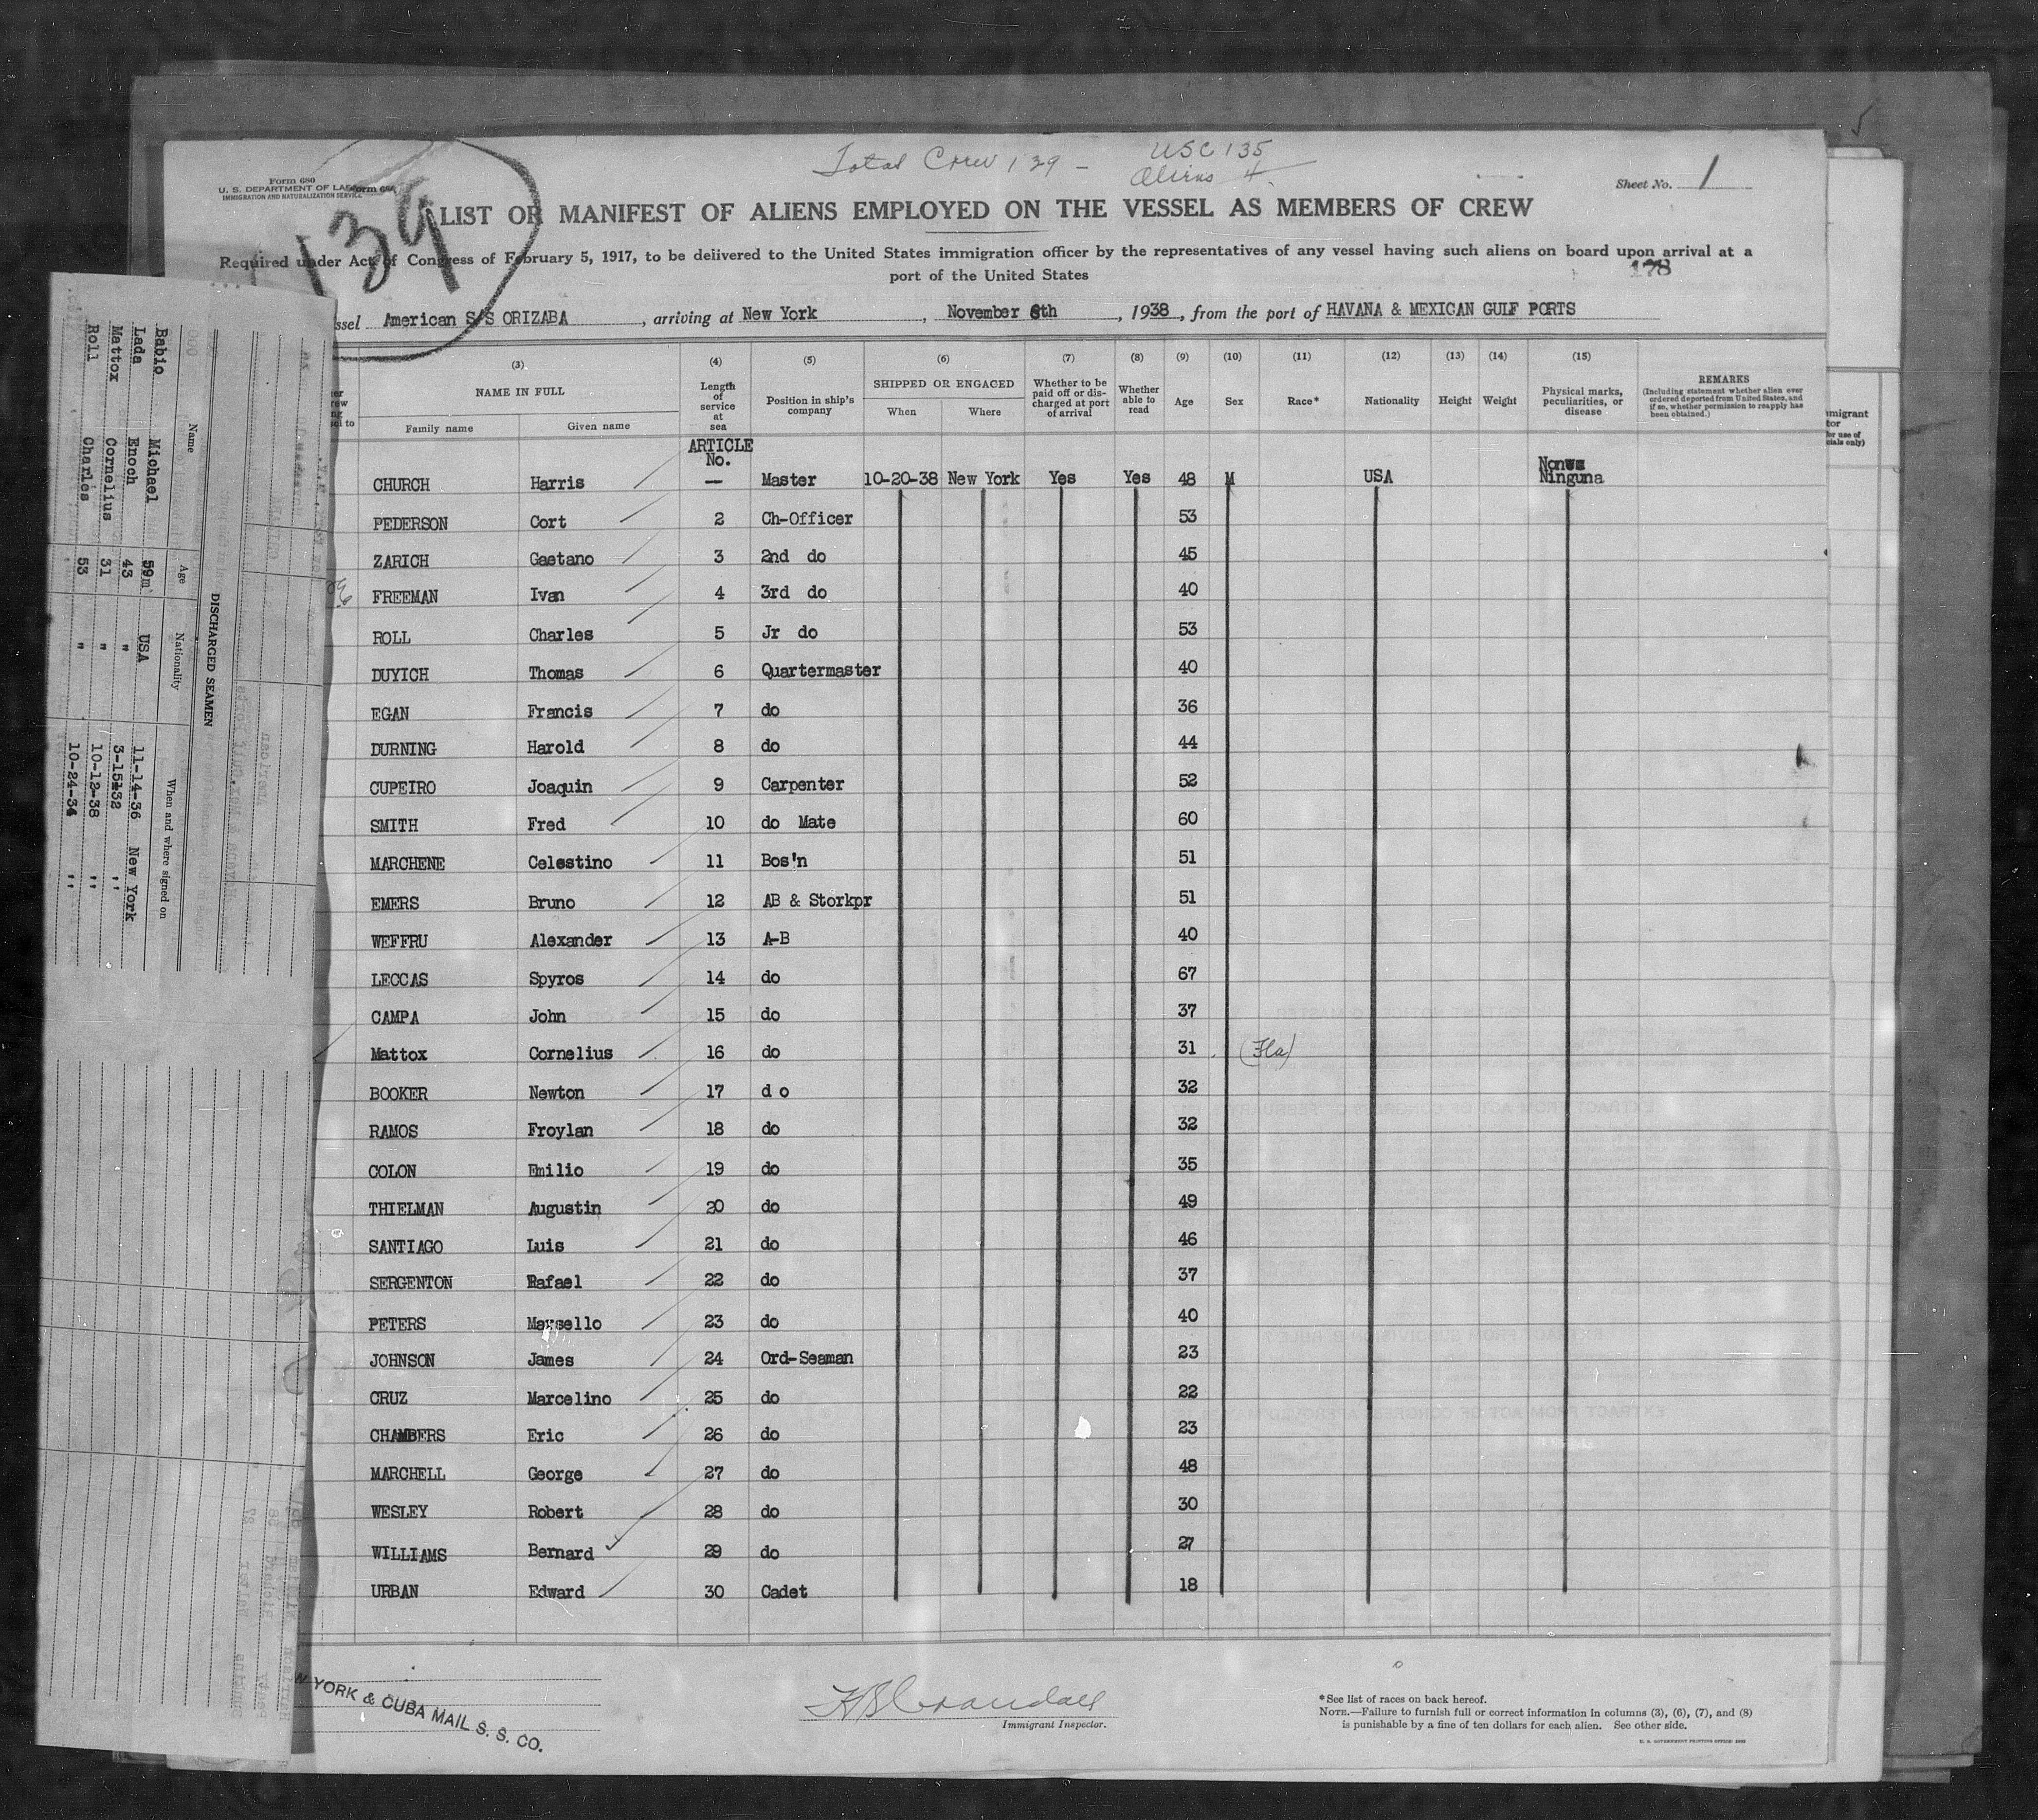 5
Total Crew 139 - USC 135
Aliens 4
Form 680
U. S. DEPARTMENT OF LA
IMMIGRATION AND NATURALIZATION SERVICE
Sheet No. 1
139
LIST OR MANIFEST OF ALIENS EMPLOYED ON THE VESSEL AS MEMBERS OF CREW
Required under Act of Congress of February 5, 1917, to be delivered to the United States immigration officer by the representatives of any vessel having such aliens on board upon arrival at a
port of the United States
178
ssel American S/S ORIZABA, arriving at New York, November 8th, 1938, from the port of HAVANA & MEXICAN GULF PORTS
(3) (4) (5) (6) (7) (8) (9) (10) (11) (12) (13) (14) (15)
NAME IN FULL Length of service at sea Position in ship's company SHIPPED OR ENGAGED Whether to be paid off or discharged at port of arrival Whether able to read Age Sex Race* Nationality Height Weight Physical marks, peculiarities, or disease REMARKS
(Including statement whether alien ever ordered deported from United States, and if so, whether permission to reapply has been obtained.)
Family name Given name When Where
ARTICLE No.
CHURCH Harris — Master 10-20-38 New York Yes Yes 48 M USA None Ninguna
PEDERSON Cort 2 Ch-Officer 53
ZARICH Gaetano 3 2nd do 45
FREEMAN Ivan 4 3rd do 40
ROLL Charles 5 Jr do 53
DUYICH Thomas 6 Quartermaster 40
EGAN Francis 7 do 36
DURNING Harold 8 do 44
CUPEIRO Joaquin 9 Carpenter 52
SMITH Fred 10 do Mate 60
MARCHENE Celestino 11 Bos'n 51
EMERS Bruno 12 AB & Storkpr 51
WEFFRU Alexander 13 A-B 40
LECCAS Spyros 14 do 67
CAMPA John 15 do 37
Mattox Cornelius 16 do 31 (Fla)
BOOKER Newton 17 d o 32
RAMOS Froylan 18 do 32
COLON Emilio 19 do 35
THIELMAN Augustin 20 do 49
SANTIAGO Luis 21 do 46
SERGENTON Rafael 22 do 37
PETERS Maysello 23 do 40
JOHNSON James 24 Ord-Seaman 23
CRUZ Marcelino 25 do 22
CHAMBERS Eric 26 do 23
MARCHELL George 27 do 48
WESLEY Robert 28 do 30
WILLIAMS Bernard 29 do 27
URBAN Edward 30 Cadet 18
N YORK & CUBA MAIL S. S. CO.
H B Crandall
Immigrant Inspector.
*See list of races on back hereof.
NOTE.—Failure to furnish full or correct information in columns (3), (6), (7), and (8)
is punishable by a fine of ten dollars for each alien. See other side.
DISCHARGED SEAMEN
Name Age Nationality When and where signed on
Babio Michael 59m USA 11-14-36 New York
Lada Enoch 43 " 3-15-32 ''
Mattox Cornelius 31 " 10-12-38 ''
Roll Charles 53 " 10-24-34 ''